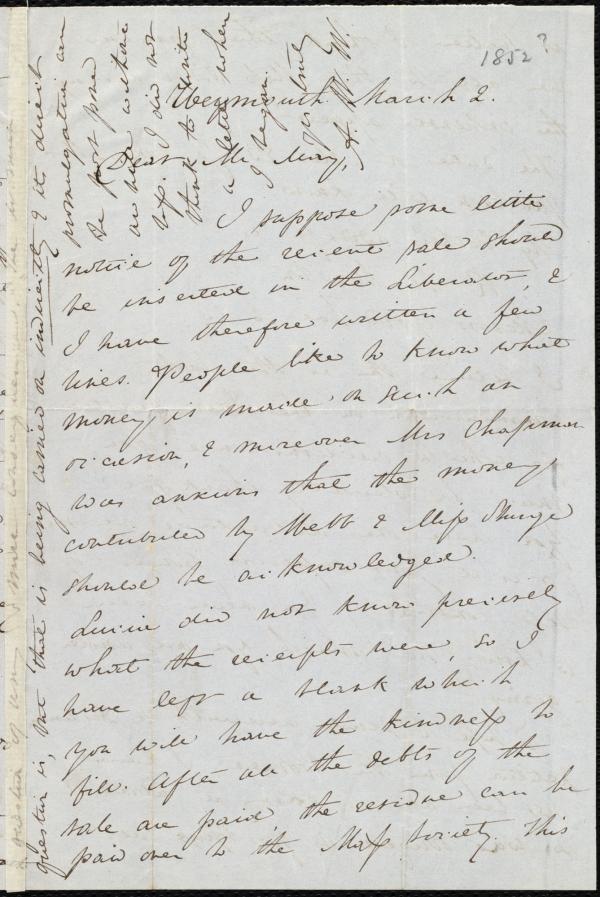 1852?
Weymouth March 2.
Dear Mr May,
I suppose some little
notice of the recent sale should
be inserted in the Liberator, &
I have therefore written a few
lines. People like to know what
money is made on such an
occasion, & moreover Mrs Chapman
was anxious that the money
contributed by Webb & Miss Sturge
should be acknowledged.
Lucia did not know precisely
what the receipts were, so I
have left a blank which
you will have the kindness to
fill. After all the debts of the
sale are paid, the residue can be
paid over to the Mass Society. This
question is, but that is being carried on indirectly & its direct
promulgation can
be post pone
I did not
think to write
a letter when
I began.
Yrs truly
A. W. W.